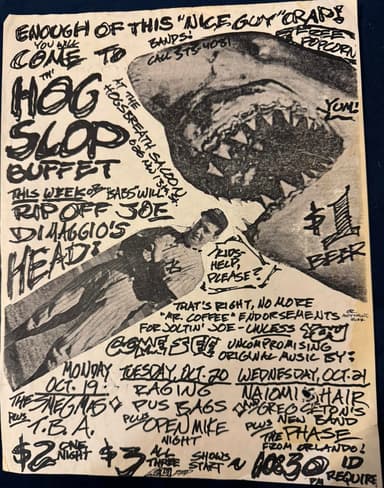 ENOUGH OF THIS "NICE GUY" CRAP!
YOU WILL
COME TO
TH'
HOG
SLOP
BUFFET
BANDS!
CALL 373-4031
FREE
POPCORN
YUM!
AT THE
HOGSBREATH SALOON
THIS WEEK "BABS" WILL
RIP OFF JOE
DIMAGGIO'S
HEAD!
$1
BEER
"KIDS-
HELP,
PLEASE?"
THAT'S RIGHT, NO MORE
"MR. COFFEE" ENDORSEMENTS
FOR JOLTIN' JOE - UNLESS YOU
COME SEE UNCOMPROMISING
ORIGINAL MUSIC BY:
MONDAY
OCT. 19!
THE
SNEGMAS
PLUS
T.B.A.
TUESDAY, OCT. 20
RAGING
PUS BAGS
PLUS
OPEN MIKE
NIGHT
WEDNESDAY, OCT. 21
NAIOMI'S HAIR
GREG CETON'S
NEW BAND
PLUS THE PHASE
FROM ORLANDO!
$2 ONE
NIGHT
$3 ALL
THREE
SHOWS
START
10:30
PM
ID
REQUIRE